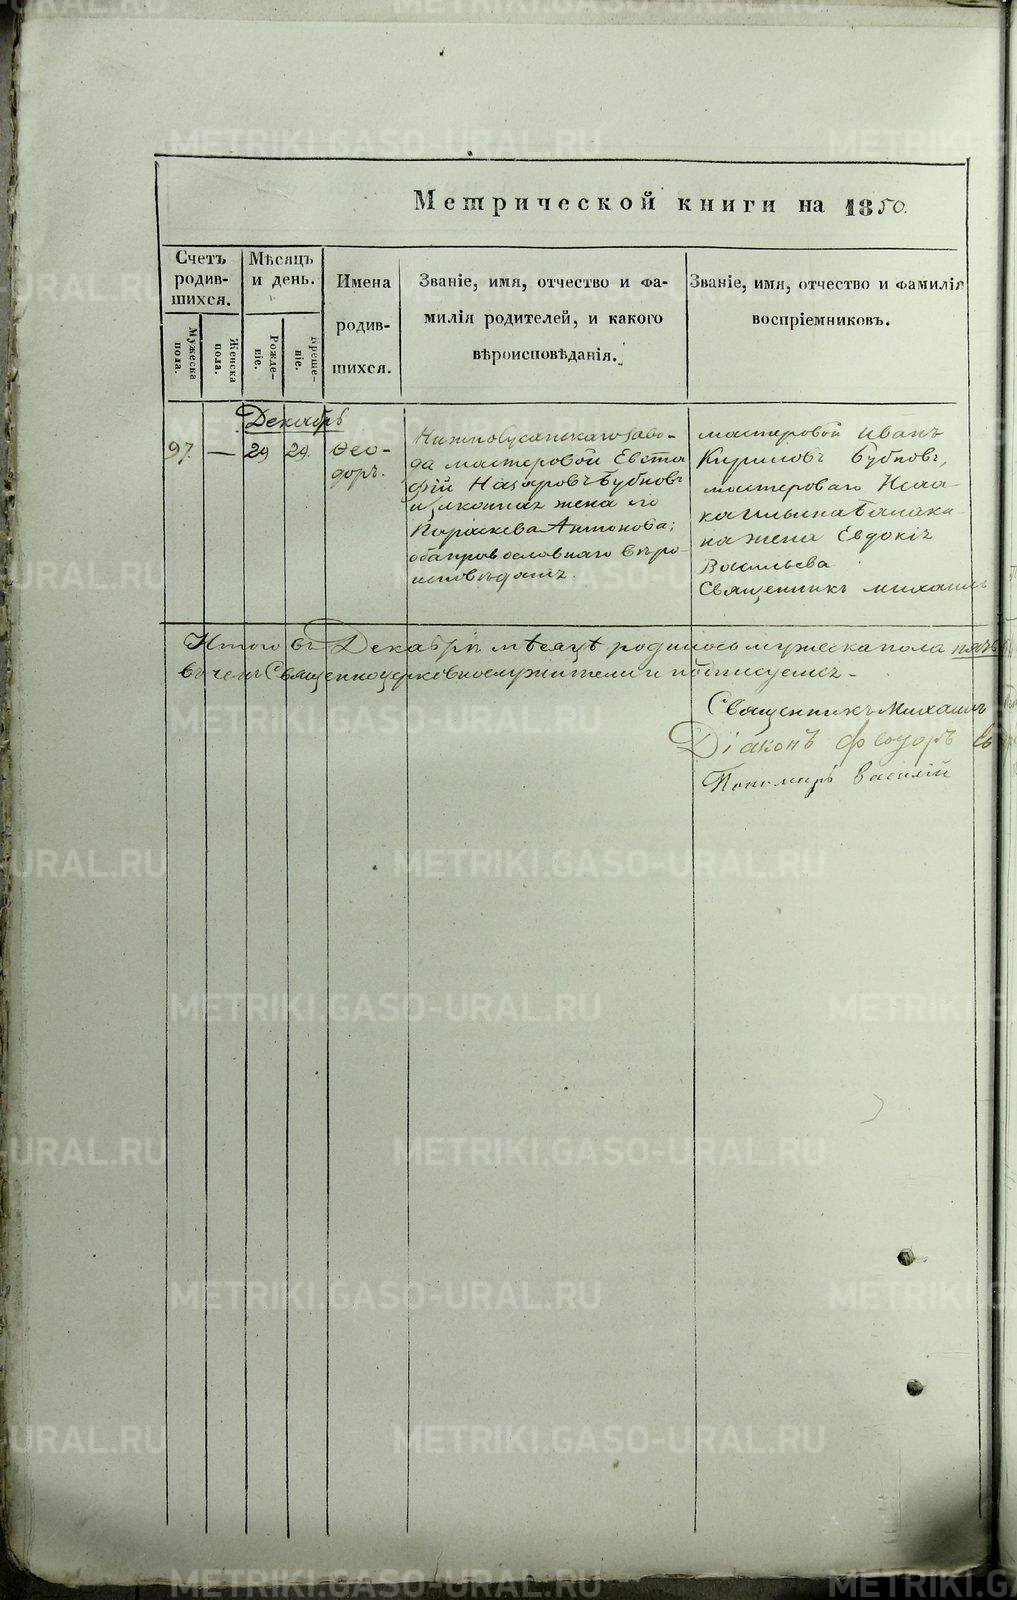 METRIKI.GASO-URAL.RU
Метрической книги на 1850.
Счетъ родив-шихся.
Мѣсяцъ и день.
Имена родив-шихся.
Званіе, имя, отчество и фа-
милія родителей, и какого
вѣроисповѣданія.
Званіе, имя, отчество и фамилія
воспріемниковъ.
Мужеска пола.
Женска пола.
Рожде-ніе.
Креще-ніе.
Декабрь
97. — 29 29. Ѳео-
доръ.
заво-
да мастеровой Евста
фій Назаровъ Бубновъ
и законная жена его
Параскева Антонова;
оба православнаго вѣро
исповѣданія.
мастеровой Иванъ
Кириловъ Бубновъ,
мастероваго Исаа-
ка Ильина
на жена Евдокія
Васильева
Священникъ Михаилъ
Итого въ Декабрѣ мѣсяцѣ родилось мужеска пола
въ чемъ Священноцерковнослужители и подписуемся
Священникъ Михаилъ
Діаконъ Феодоръ
Пономарь Василій